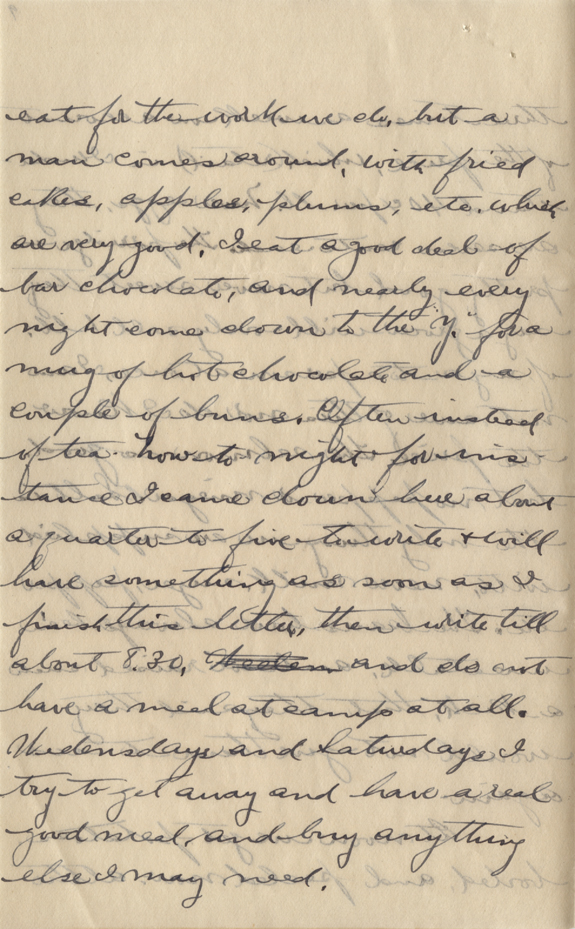 eat for the work we do, but a
man comes around, with fried
cakes, apples, plums, etc. which
are very good. I eat a good deal of
bar chocolate, and nearly every
night come down to the "Y." for a
mug of hot chocolate and a
couple of buns. Often instead
of tea. Now to night for ins-
tance I came down here about
a quarter to five to write & will
have something as soon as I
finish this letter, then write till
about 8.30, and do not
have a meal at camp at all.
Wedensdays and Saturdays I
try to get away and have a real
good meal, and buy anything
else I may need.